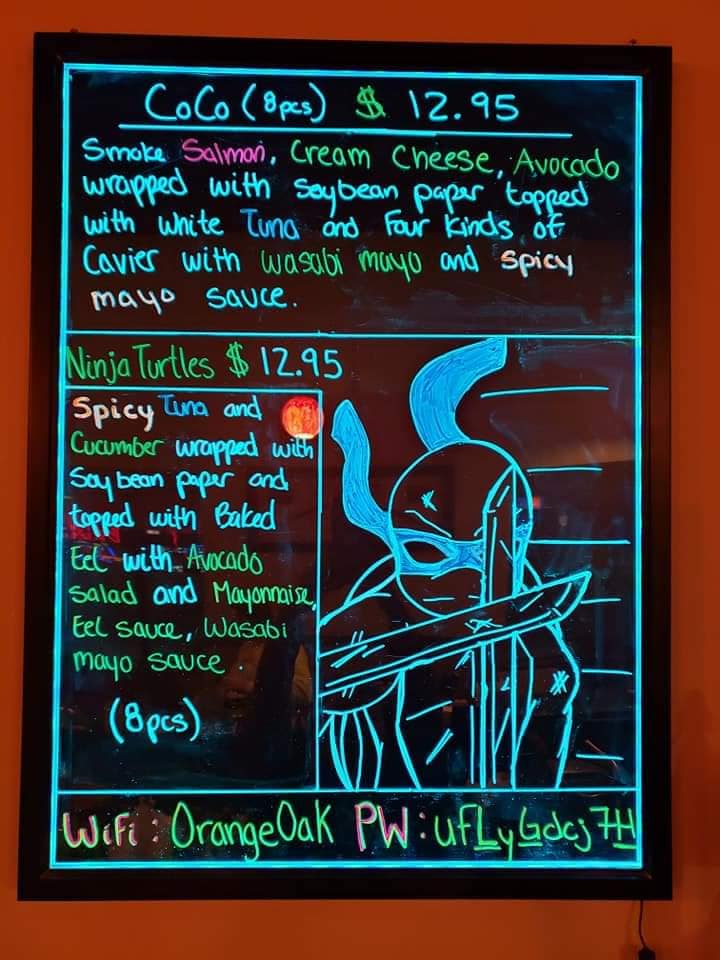 CoCo (8pcs) $ 12.95
Smoke Salmon, Cream Cheese, Avocado
wrapped with Soybean paper topped
with White Tuna and Four Kinds of
Cavier with Wasabi mayo and Spicy
mayo sauce.
Ninja Turtles $ 12.95
Spicy Tuna and
Cucumber wrapped with
Soybean paper and
topped with Baked
Eel with Avocado
Salad and Mayonnaise,
Eel sauce, Wasabi
mayo sauce.
(8pcs)
WiFi : OrangeOak PW : ufLyGdcj7H